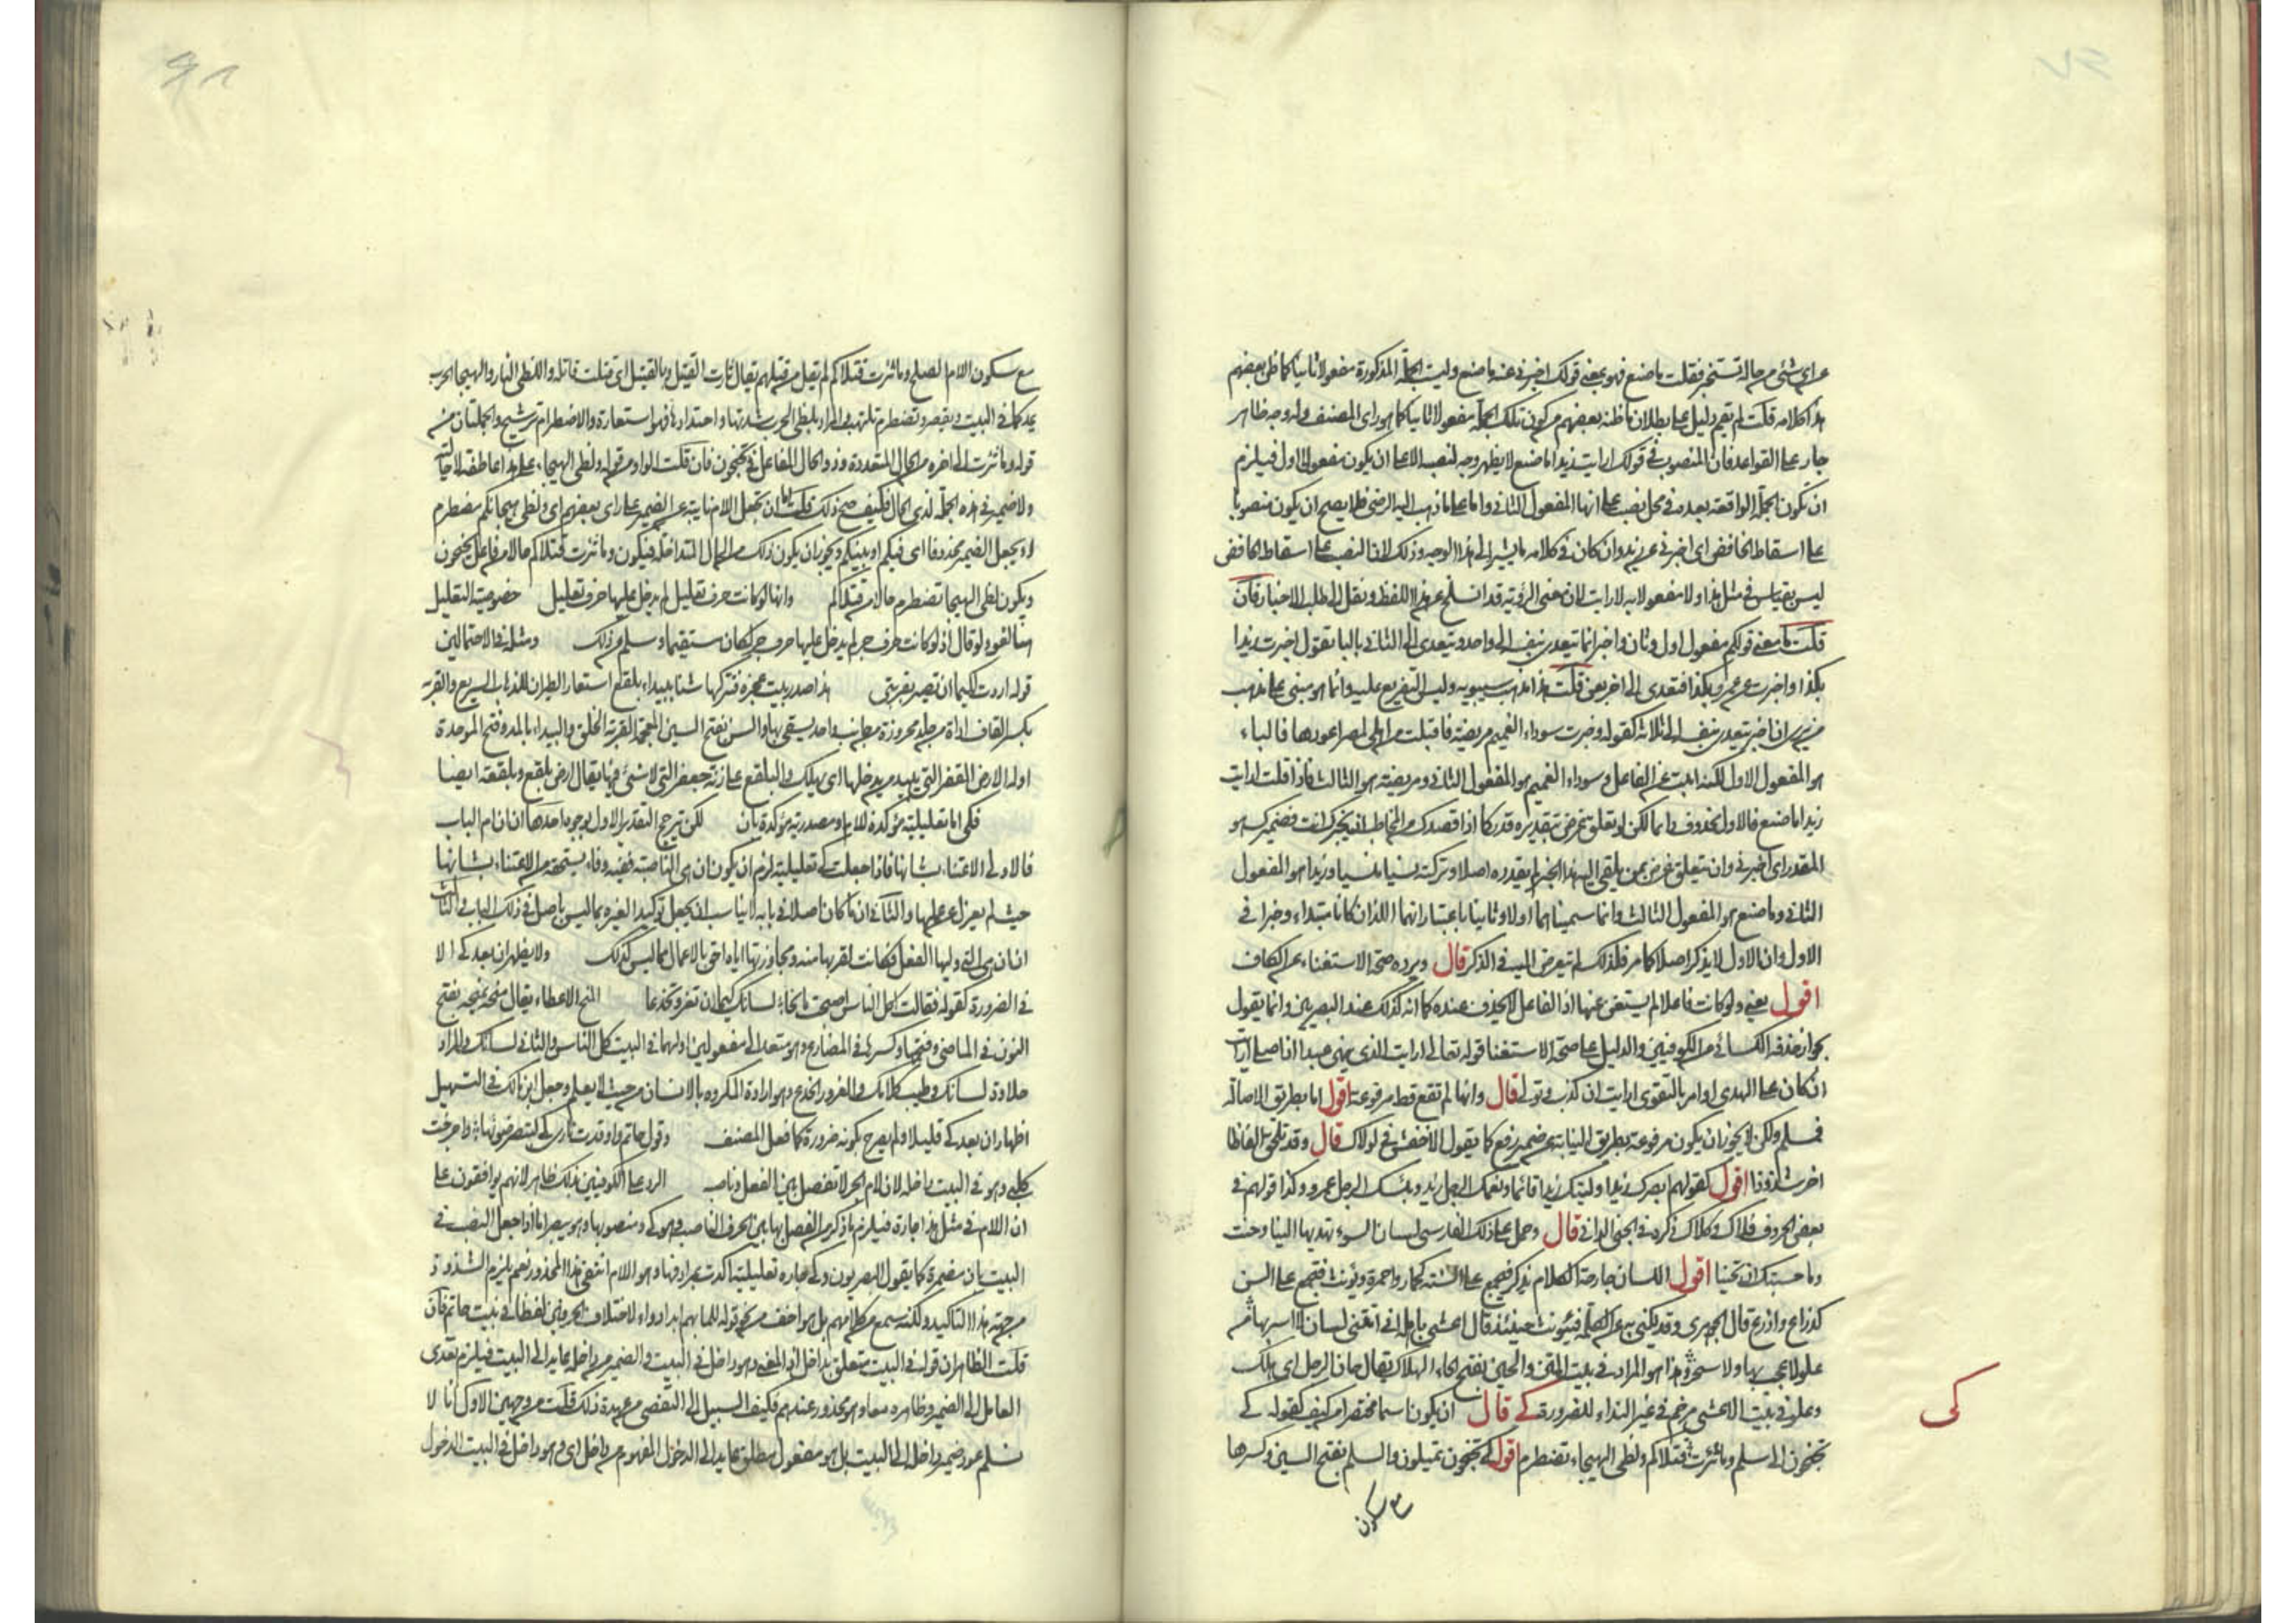 عن اى شئ من حاله تستخبر فقلت ما صنع فهو بمعنى قولك اخبرنى عنه ما صنع وليست الجملة المذكورة مفعولا ثانيا كما ظن بعضهم
هذا كلامه قلت لم يقم دليل على بطلان ما ظنه بعضهم من كون تلك الجملة مفعولا ثانيا كما هو راى المصنف وله وجه ظاهر
جار على القواعد فان المنصوب فى قولك ارايت زيدا ما صنع لا يظهر وجه لنصبه الا على ان يكون مفعولا اول فيلزم
ان تكون الجملة الواقعة بعده فى محل نصب على انها المفعول الثانى واما على ما ذهب اليه الرضى فلا يصح ان يكون منصوبا
على اسقاط الخافض اى اخبرنى عن زيد وان كان فى كلامه ما يشير الى هذا الوجه وذلك لان النصب على اسقاط الخافض
ليس بقياس فى مثل هذا ولا مفعولا به لارايت لان معنى الرؤية قد انسلخ عن هذا اللفظ ونقل الى طلب الاخبار فان
قلت ما معنى قولكم مفعول اول وثان واخبر انما يتعدى بنفسه الى واحد ويتعدى الى الثانى بالباء تقول اخبرت زيدا
بكذا واخبرت عن عمرو بكذا فتعدى الى اخر بعن قلت هذا مذهب سيبويه وليس التفريع عليه وانما هو مبنى على مذهب
من يرى ان اخبر يتعدى بنفسه الى ثلاثة كقوله وخبرت سوداء الغميم مريضة فاقبلت من اهلى بمصر اعودها فالتاء
هو المفعول الاول لكنه انيب عن الفاعل وسوداء الغميم هو المفعول الثانى ومريضة هو الثالث فاذا قلت ارايت
زيدا ما صنع فالاول محذوف دائما لكن ان تعلق غرض بتقديره قدر كما اذا قصدك من المخاطب ان يخبرك انت فضميرك هو
المقدر اى اخبرنى وان تعلق غرض بمن يلقى اليه هذا الخبر لم يقدره اصلا وتركته نسيا منسيا وزيدا هو المفعول
الثانى وما صنع هو المفعول الثالث وانما سميناهما اولا وثانيا باعتبار انهما اللذان كانا مبتداء وخبرا فى
الاول وان الاول لا يذكر اصلا كما مر فلذلك لم نتعرض اليه فى الذكر قال ويرده صحة الاستغناء عن الكاف
اقول يعنى ولو كانت فاعلا لم يستغن عنها اذ الفاعل لا يحذف عنده كما انه كذلك عند البصريين وانما يقول
بجواز حذفه الكسائى من الكوفيين والدليل على صحة الاستغنا قوله تعالى ارايت الذى ينهى عبدا اذا صلى ارايت
ان كان على الهدى او امر بالتقوى ارايت ان كذب وتولى قال وانها لم تقع قط مرفوعة اقول اما بطريق الاصالة
فمسلم ولكن لا يجوز ان يكون مرفوعة بطريق النيابة عن ضمير رفع كما يقول الاخفش فى لولاك قال وقد تلحق الفاظا
اخر شذوذا اقول كقولهم ابصرك زيدا وليتك زيدا قائما ونعمك الرجل زيد وبئسك الرجل عمرو وكذا قولهم فى
بعض الحروف كلاك ذكره فى الجنى الدانى قال وحمل على ذلك الفارسى لسان السوء تهديها الينا وحنت
وما حسبتك ان تحينا اقول اللسان جارحة الكلام يذكر فيجمع على السنة كحمار واحمرة ويؤنث فتجمع على السن
كذراع واذرع قال الجوهرى وقد يكنى به عن الكلمة فيؤنث حينئذ قال اعشى باهلة انى اتتنى لسان لا اسر بها من
علو لا عجب بها ولا سخر وهذا هو المراد فى بيت المتن والحين بفتح الحاء الهلاك يقال حان الرجل اى هلك
وعلو فى بيت الاعشى مرخم فى غير النداء للضرورة كى قال ان يكون اسما مختصرا من كيف كقوله كى
تجنحون الى سلم وما ثئرت قتلاكم ولظى الهيجاء تضطرم اقول كى تجنحون تميلون والسلم بفتح السين وكسرها
مع سكون
كى
مع سكون اللام الصلح وما ثئرت قتلاكم لم تقبل من قتيلهم يقال ثارت القتيل وبالقتيل اى قتلت قاتله واللظى النار والهيجا الحرب
يمد كما فى البيت ويقصر وتضطرم تلتهب والمراد بلظى الحرب شدتها واحتدادها فهو استعارة والاضطرام ترشيح والجملتان من
قوله وما ثئرت الى اخره من الحال المتعددة وذو الحال الفاعل فى تجنحون فان قلت الواو من قوله ولظى الهيجاء على هذا عاطفة لا حالية
ولا ضمير فى هذه الجملة لذى الحال فكيف صح ذلك قلت اما ان تجعل اللام نايبة عن الضمير على راى بعضهم اى ولظى هيجائكم مضطرم
او يجعل الضمير محذوفا اى فيكم او بينكم ويجوز ان يكون ذلك من الحال المتداخلة فيكون وما ثئرت قتلاكم حالا من فاعل تجنحون
ويكون لظى الهيجا تضطرم حالا من قتلاكم وانها لو كانت حرف تعليل لم يدخل عليها حرف تعليل خصوصية التعليل
هنا لغو ولو قال اذ لو كانت حرف جر لم يدخل عليها حرف جر لكان مستقيما وسلم من ذلك ومثله فى الاحتمالين
قوله اردت لكيما ان تطير بقربتى هذا صدر بيت عجزه فتتركها شنا ببيداء بلقع استعار الطيران للذهاب السريع والقربة
بكسر القاف اداة من جلد محروزة من جانب واحد يستقى بها والشن بفتح الشين المعجمة القربة الخلق والبيداء بالمد وفتح الموحدة
اوله الارض القفر التى يبيد من يدخلها اى يهلك والبلقع على زنة جعفر التى لا شئ فيها يقال ارض بلقع وبلقعة ايضا
فكى اما تعليلية مؤكدة للام او مصدرية مؤكدة بان لكن يترجح التقدير الاول بوجوه احدها ان ان ام الباب
فالاولى الاعتناء بشانها فاذا جعلت كى تعليلية لزم ان يكون ان هى الناصبة ففيه وفاء بما يستحقه من الاعتناء بشانها
حيث لم يعزل عن عملها والثانى ان ما كان اصلا فى بابه لا يناسب ان يجعل توكيدا لغيره مما ليس باصل فى ذلك الباب والثالث
ان ان هى التى وليها الفعل فكانت لقربها منه ومجاوزتها اياه احق بالاعمال مما ليس كذلك ولا يظهر ان بعد كى الا
فى الضرورة كقوله فقالت اكل الناس اصبحت مانحا لسانك كيما ان تغر وتخدعا المنح الاعطاء يقال منحه يمنحه بفتح
النون فى الماضى وفتحها وكسرها فى المضارع وهو متعد الى مفعولين اولهما فى البيت كل الناس والثانى لسانك والمراد
حلاوة لسانك وطيب كلامك والغرور الخدع وهو ارادة المكروه بالانسان من حيث لا يعلم وجعل ابن مالك فى التسهيل
اظهار ان بعد كى قليلا ولم يصرح بكونه ضرورة كما فعل المصنف وقول حاتم واوقدت نارى كى ليبصر ضوئها واخرجت
كلبى وهو فى البيت داخله لان لام الجر لا تفصل بين الفعل وناصبه الرد على الكوفيين بذلك ظاهر لانهم يوافقون على
ان اللام فى مثل هذا جارة فيلزم ما ذكر من الفصل بها بين الحرف الناصب وهو كى ومنصوبها وهو يبصر اما اذا جعل النصب فى
البيت بان مضمرة كما يقول البصريون وكى جارة تعليلية اكدت بمرادفها وهو اللام انتفى هذا المحذور نعم يلزم الشذوذ
من جهة هذا التاكيد ولكنه سمع من كلامهم بل هو اخف من نحو قوله للما بهم ابدا دواء لاختلاف الحرفين لفظا فى بيت حاتم فان
قلت الظاهر ان قوله فى البيت متعلق بداخله اذ المعنى وهو داخل فى البيت والضمير من داخله عايد الى البيت فيلزم تعدى
العامل الى الضمير وظاهره معا وهو محذور عندهم فكيف السبيل الى التفصى من عهدة ذلك قلت من وجهين الاول انا لا
نسلم عود ضمير داخله الى البيت بل هو مفعول مطلق عايد الى الدخول المفهوم من داخل اى وهو داخل فى البيت الدخول